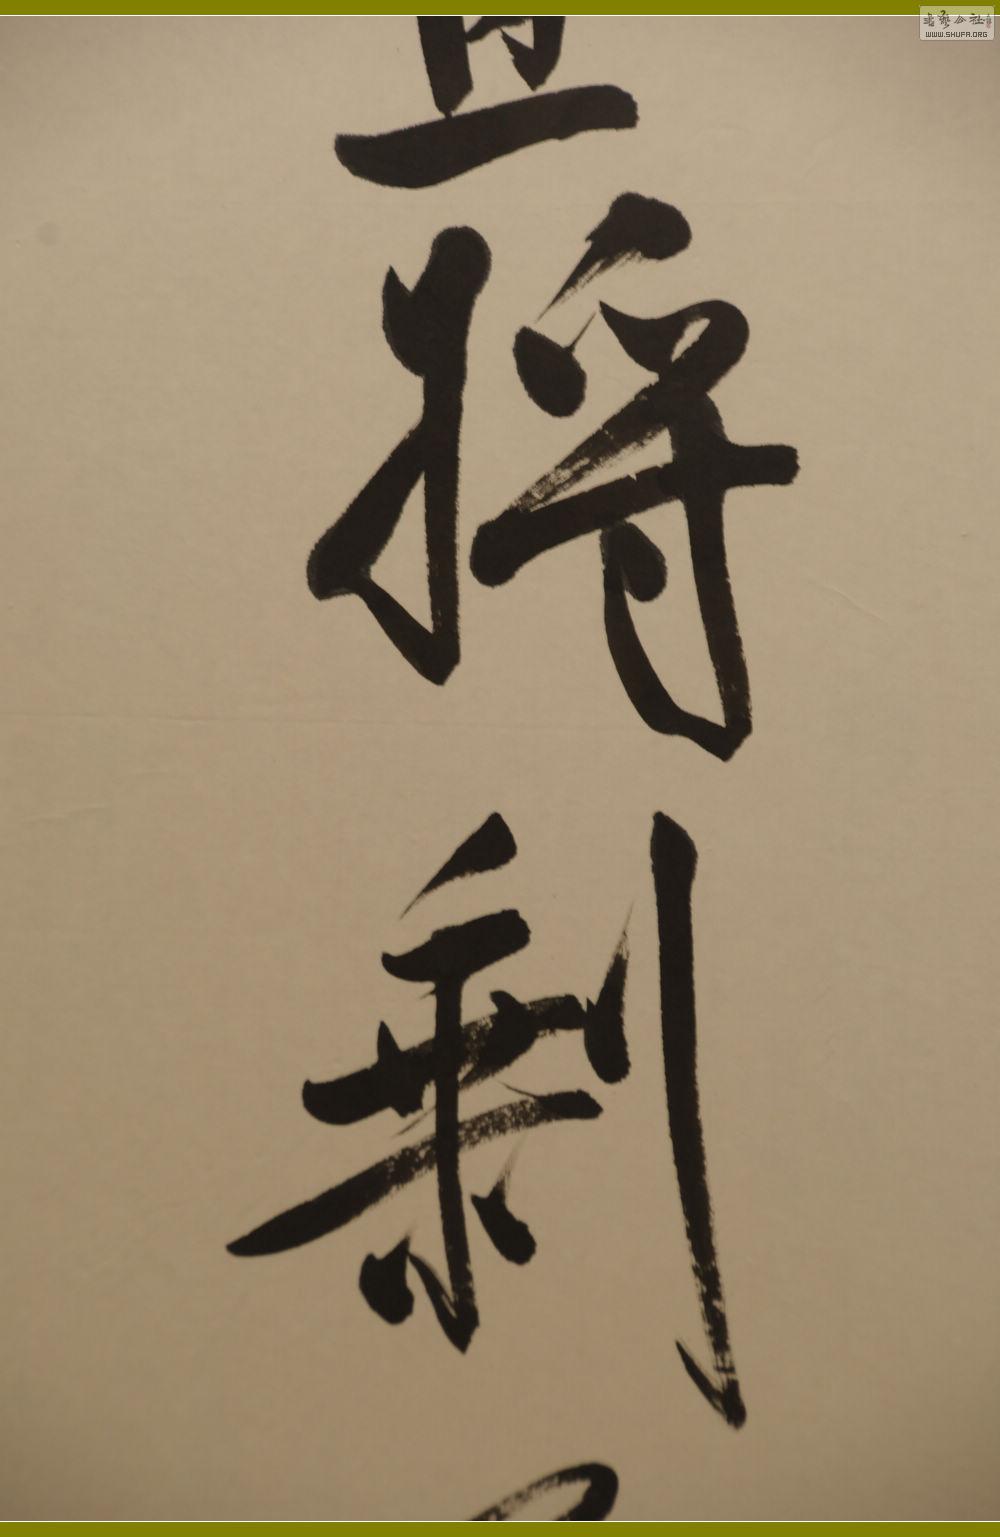 将剩
书艺公社
WWW.SHUFA.ORG